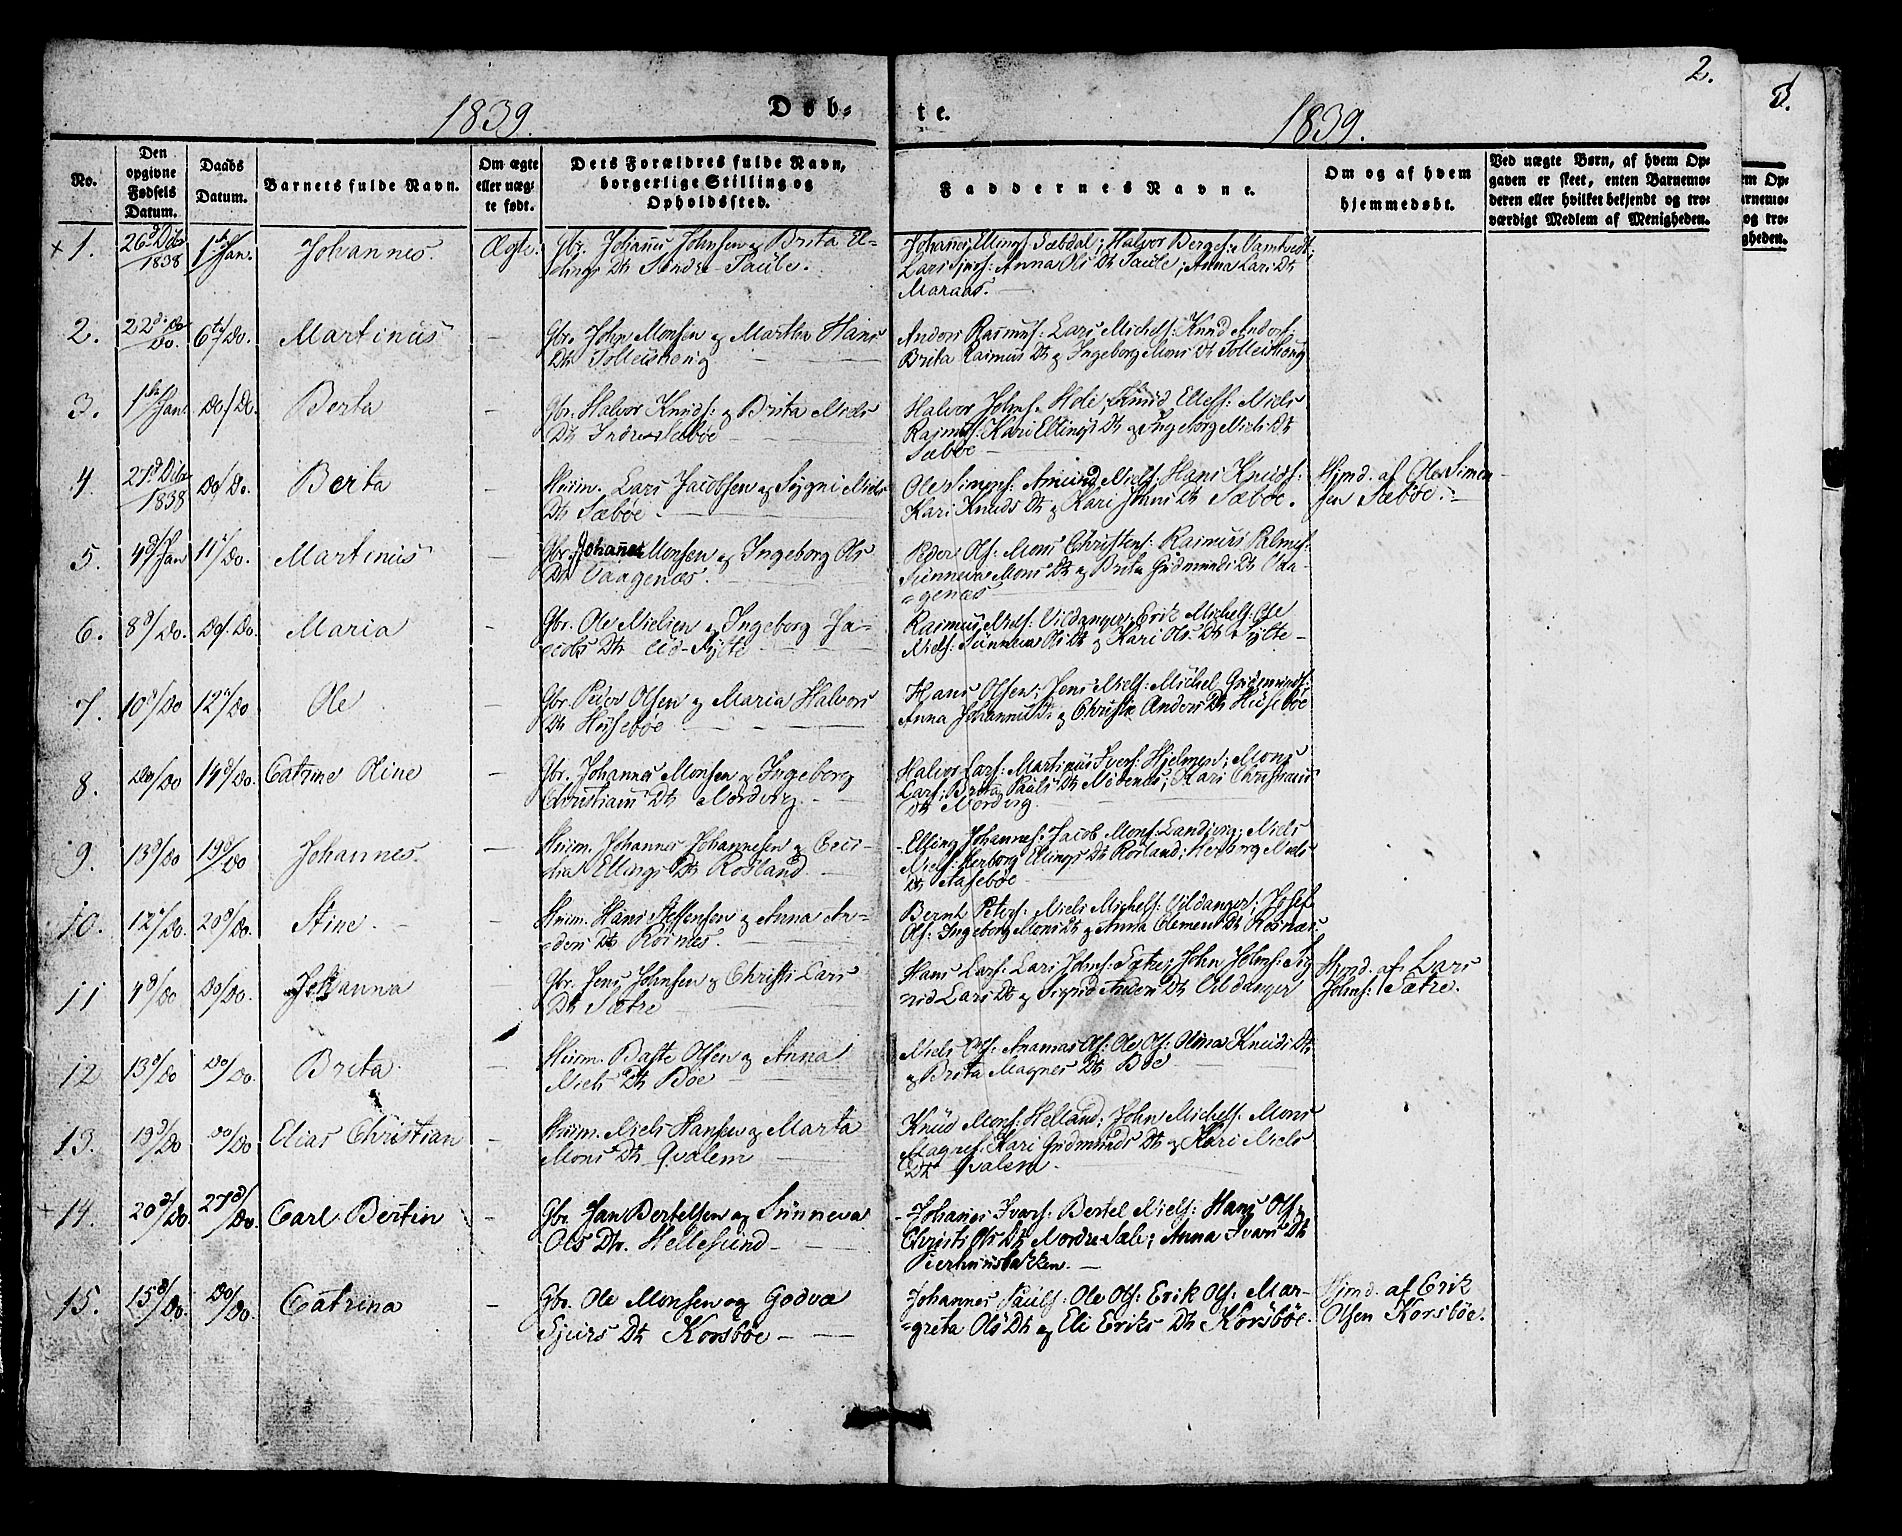 2.
1839. Døb-
te. 1839.
No.
Den opgivne Fødsels Datum.
Daabs Datum.
Barnets fulde Navn.
Om ægte eller uægte født.
Dets Forældres fulde Navn, borgerlige Stilling og Opholdssted.
Faddernes Navne.
Om og af hvem hjemmedøbt.
Ved uægte Børn, af hvem Opgaven er skeet, enten Barnemoderen eller hvilket bekjendt og troværdigt Medlem af Menigheden.
+ 1. 26d Dbr 1838 1ste Jan. Johannes. Ægte. Gbr. Johañes Johnsen og Brita El-
lings Dtr Søndre
Johañes Ellings: Sæbdal; Halvor Berges: Vamtvedt;
Lars Sjurs: Anna Ols Dtr Anna Lars Dtr
Maraas.
2. 22d Do. 6te Do. Martinus — Gbr. John Monsen og Martha Hans
Dtr
Anders Rasmus: Lars Michels: Knud Anders:
Brita Rasmus Dtr og Ingeborg Mons Dtr
3. 1ste Jan. Do/Do. Berta — Gbr. Halvor Knuds: og Brita Niels
Dtr Indre Sæbøe
Halvor Johns: Hole; Knud Ellefs: Niels
Rasmus: Kari Ellings Dtr og Ingeborg Niels Dtr
Sæbøe
4. 27d Dbr 1838 Do/Do. Berta — Huusm. Lars Jacobsen og Sygni Niels
Dtr Sæbøe.
Ole Simons: Amund Niels: Hans Knuds:
Kari Knuds Dtr og Kari Johns Dtr Sæbøe.
Hjmd. af Ole Simon-
sen Sæbøe.
5. 4d/Jan 11/Do. Martinus — Gbr. Johañes Monsen og Ingeborg Ols
Dtr Vaagenæs.
Peder Ols: Mons Christens: Rasmus
Sünneva Mons Dtr og Brita Gudmunds Dtr Vaa-
genæs
6. 8d/Do. Do/Do. Maria — Gbr. Ole Nielsen og Ingeborg Ja-
cobs Dtr Eid-Sylte
Rasmus Niels: Vildanger; Erik Michels: Ole
Niels: Sünneva Ols Dtr og Kari Ols Dtr Sylte
7. 10d/Do 12/Do Ole — Gbr. Peder Olsen og Maria Halvors
Dtr Husebøe
Hans Olsen; Jens Niels: Michel Gudmunds:
Anna Johannes D. og Christie Anders Dtr Husebøe
8. Do/Do 14d/Do. Catrine Oline — Gbr. Johannes Monsen og Ingeborg
Christians Dtr Nordvig.
Halvor Lars: Martinus Ivers: Hjelmen; Mons
Lars: Brita Pauls Dtr Kari Christians
Dtr Nordvig.
9. 13d/Do 19d/Do Johannes. — Huusm. Johannes Johannesen og Ceci-
lia Ellings Dtr Rosland
Elling Johannes: Jacob Mons: Landsvig; Niels
Niels: Herborg Ellings Dtr Rosland; Herborg Niels
Dtr Aasebøe
10. 12/Do. 20d/Do. Stine. — Huusm. Hans Steffensen og Anna An-
ders Dtr Rosnes.
Bernt Peters: Niels Michels: Vildanger; Josef
Ols: Ingeborg Mons Dtr og Anna Clement Dtr Rosnæs.
11 4d/Do Do/Do. Johanna — Gbr. Jens Johnsen og Christi Lars
Dtr Sætre
Hans Lars: Lars Johns: Sætre; John Johns: Sig-
nid Lars Dtr og Sigrid Anders Dtr Vildanger
Hjmd. af Lars
Johns: Sætre.
12 13d/Do Do/Do. Brita. — Huusm. Baste Olsen og Anna
Niels Dtr Bøe
Niels Ols: Ananias Ols: Ole Ols: Olina Knuds Dtr
og Brita Magnes Dtr Bøe
13. 19d/Do Do/Do Elias Christian — Huusm. Niels Hansen og Marta
Mons Dtr Qvalem
Knüd Mons: Helland; John Michels: Mons
Magnes: Kari Gudmunds Dtr og Kari Niels
Dtr Qvalem.
+ 14. 20d/Do. 27d/Do. Carl Bertin — Gbr. Jan Bertelsen og Sünneva
Ols Dtr. Hellesund
Johañes Ivars: Bertel Niels: Hans Ols: og
Christi Ols Dtr Nordre Sæle; Anna Ivars Dtr
15. 15d/Do. Do/Do. Catrina — Gbr. Ole Monsen og Godva
Sjurs Dtr Korsbøe
Johannes Pauls: Ole Ols: Erik Ols: Mar-
greta Ols Dtr og Eli Eriks Dtr Korsbøe.
Hjmd. af Erik
Olsen Korsbøe.